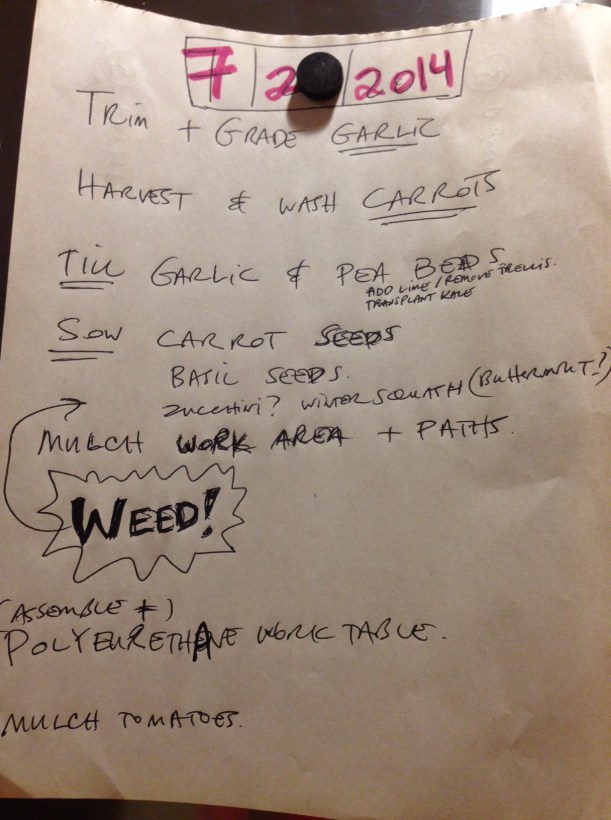 7 2 2014
TRIM + GRADE GARLIC
HARVEST & WASH CARROTS
TILL GARLIC & PEA BEDS
ADD LIME / REMOVE TRELLIS.
TRANSPLANT KALE
SOW CARROT SEEDS
BASIL SEEDS.
ZUCCHINI? WINTER SQUASH (BUTTERNUT?)
MULCH WORK AREA + PATHS.
WEED!
(ASSEMBLE +)
POLYEURETHANE WORK TABLE.
MULCH TOMATOES.